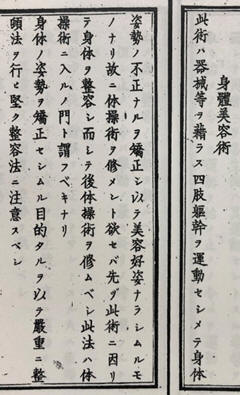 身體美容術
此術ハ器械等ヲ藉ラス四肢軀幹ヲ運動セシメテ身体
姿勢ノ不正ナルヲ矯正シ以テ美容好姿ナラシムルモ
ノナリ故ニ体操術ヲ修メント欲セバ先ヅ此術ニ因リ
テ身体ヲ整容シ而シテ後体操術ヲ修ムベシ此法ハ体
操術ニ入ルノ門ト謂フベキナリ
身体ノ姿勢ヲ矯正セシムル目的タルヲ以テ嚴重ニ整
頓法ヲ行ヒ堅ク整容法ニ注意スベシ